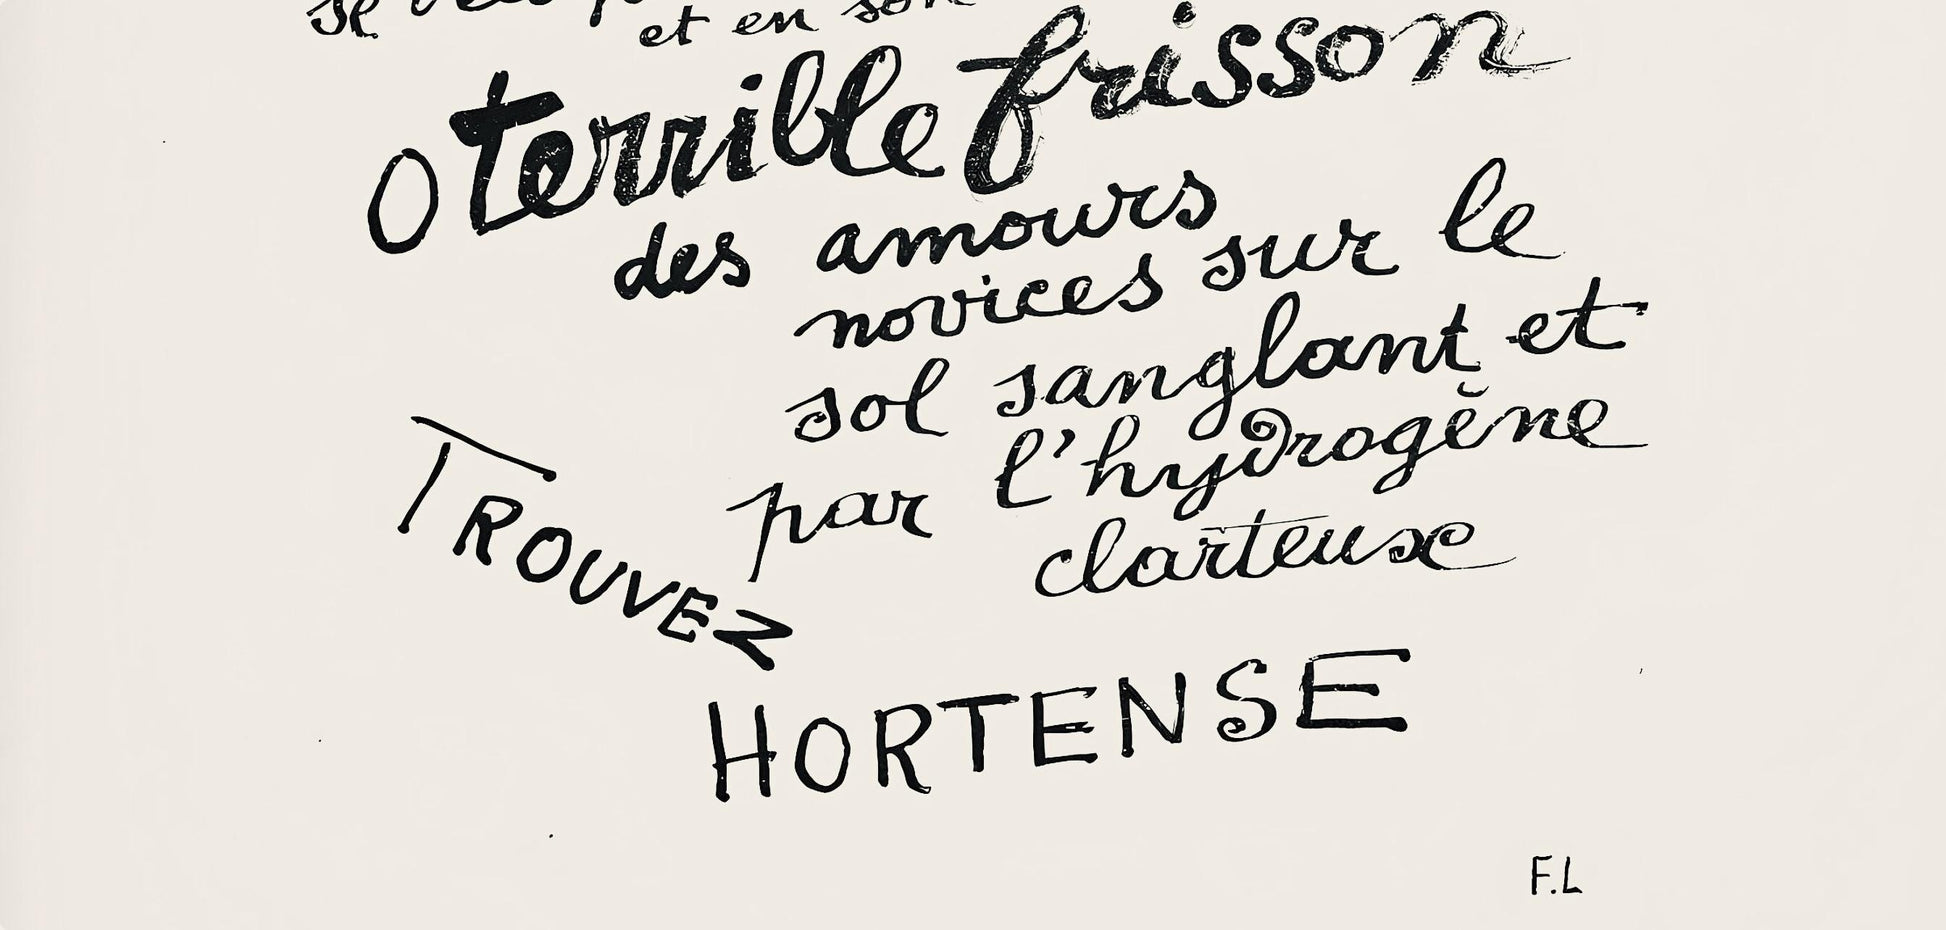 se
et en son
O terrible frisson
des amours
novices sur le
sol sanglant et
par l'hydrogène
clarteuse
TROUVEZ
HORTENSE
F.L